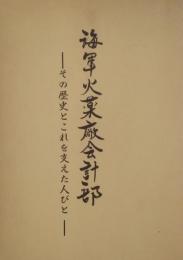 海軍火薬廠会計部
―その歴史とこれを支えた人びと―